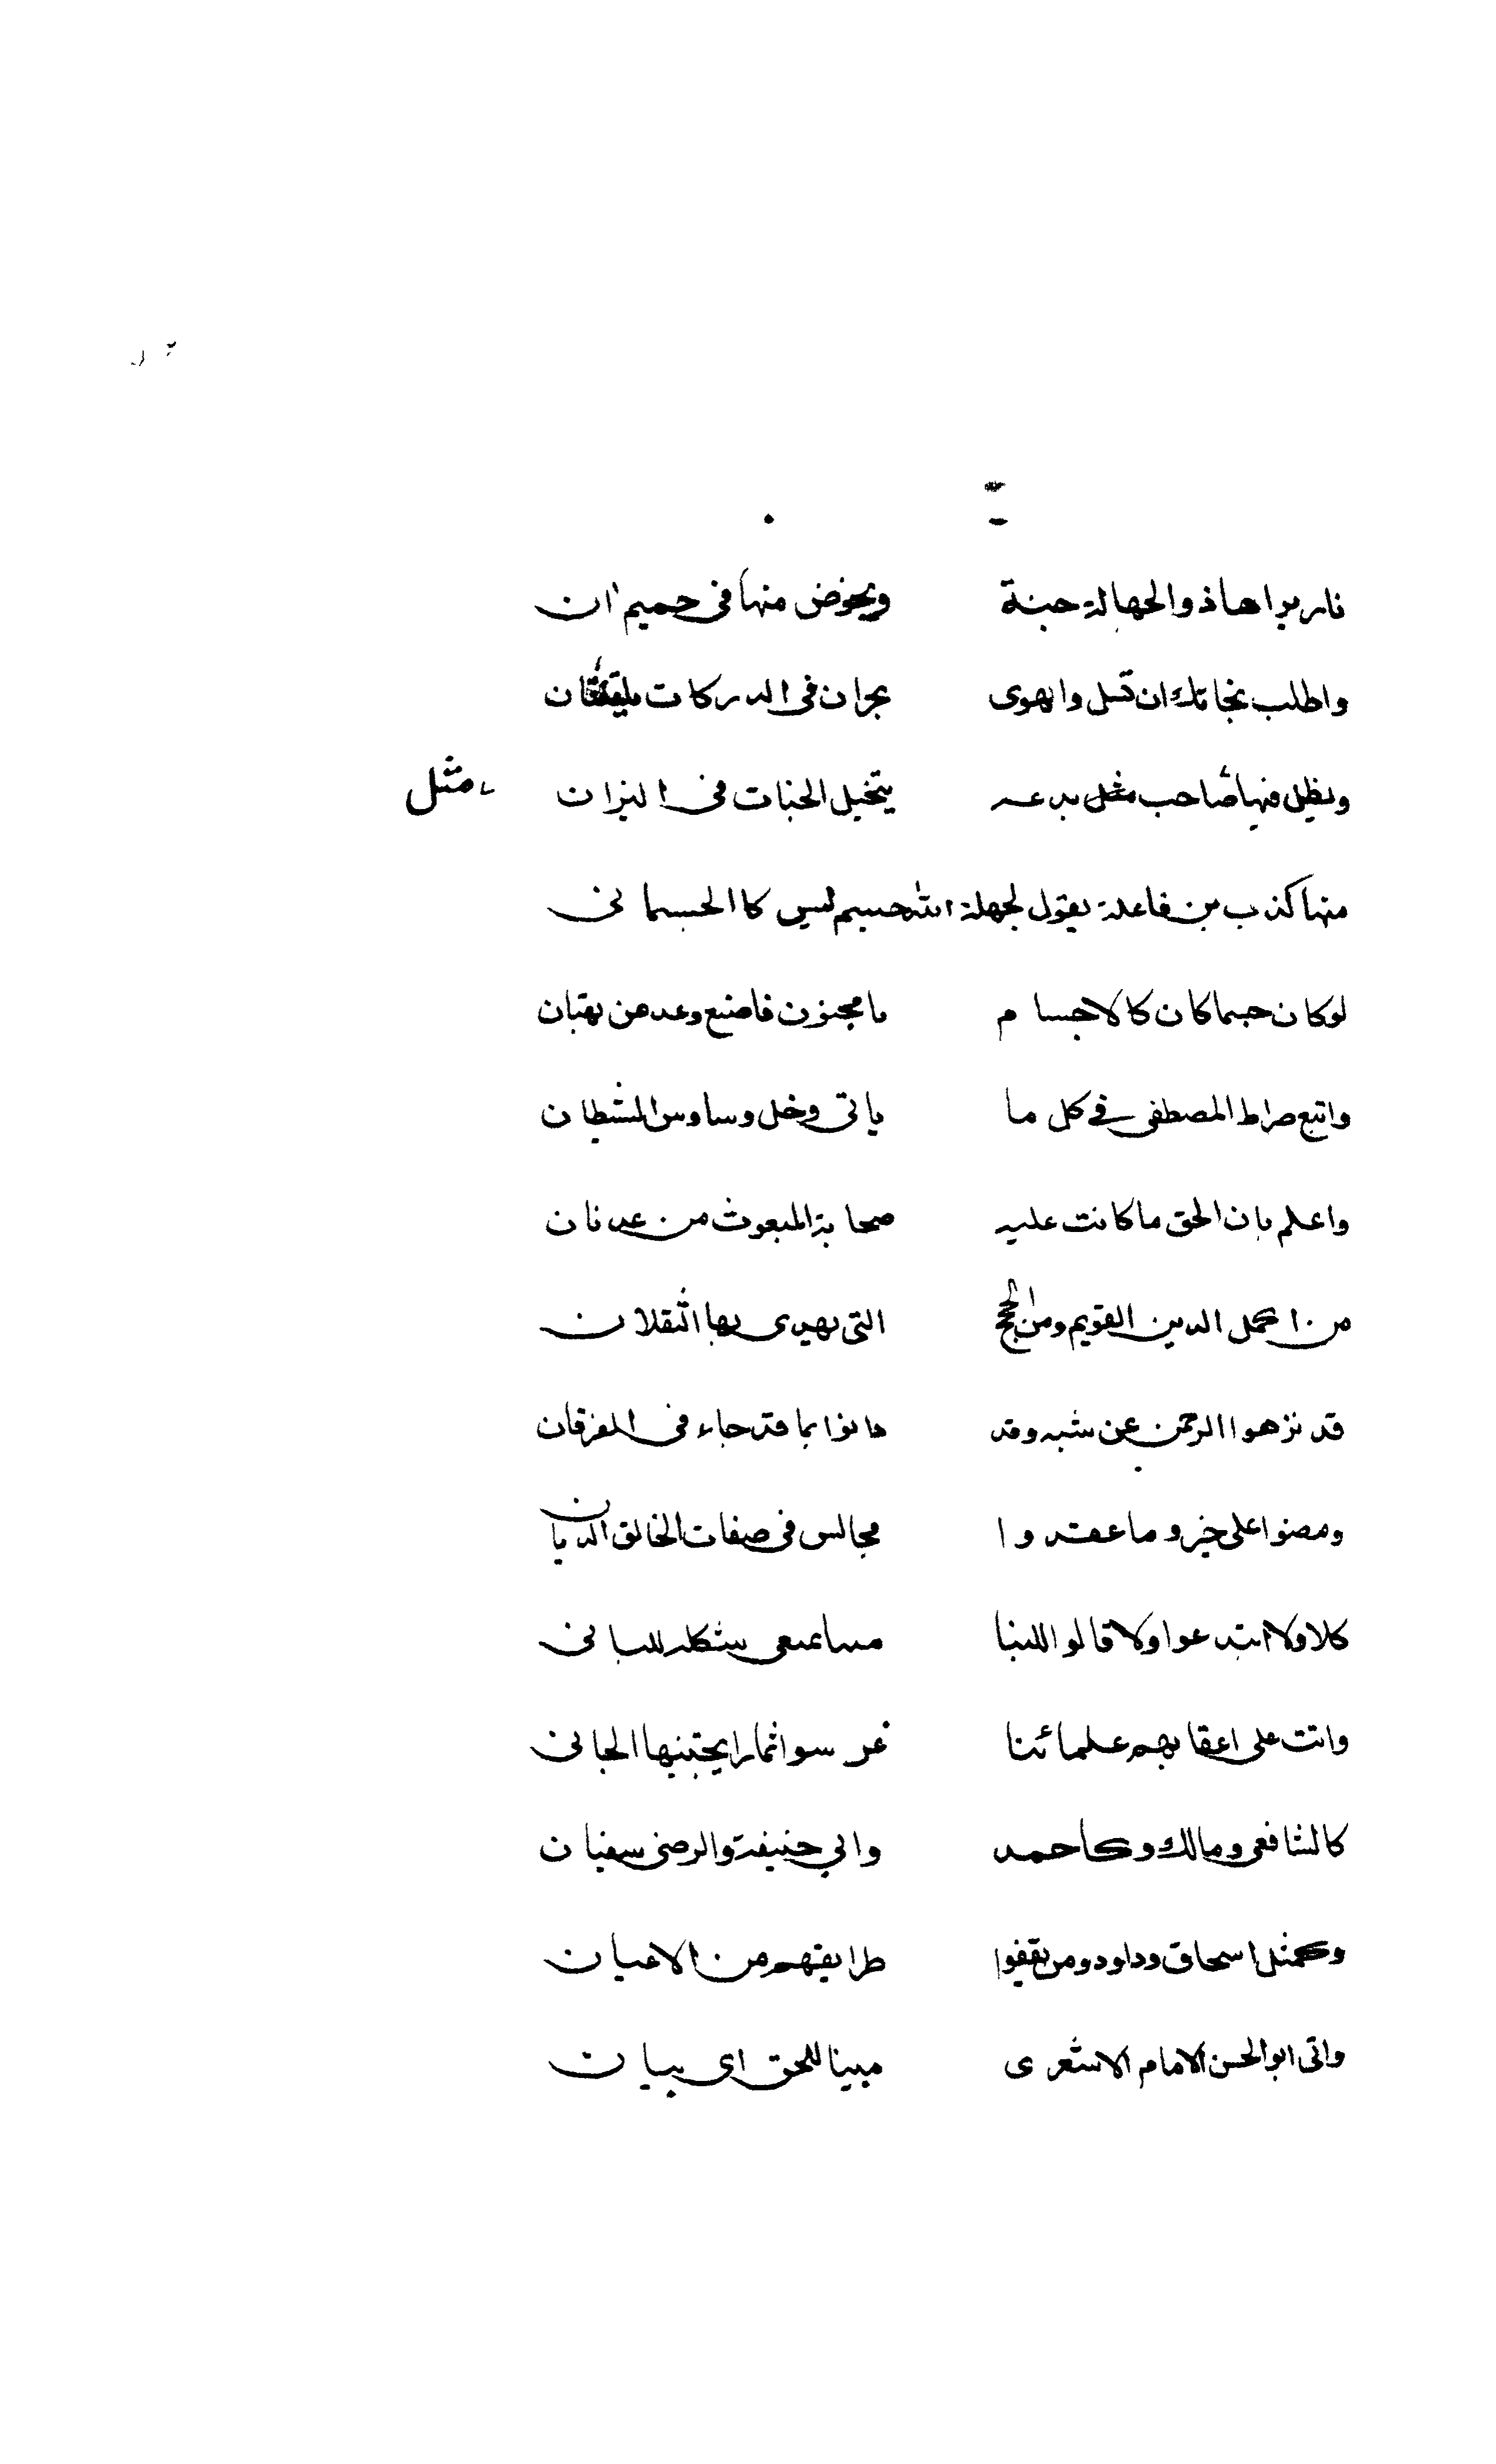 نار يراها ذو الجهالة جنة ويخوض منها في حميم ان
واطلب نجاتك ان والهوى بحران في الدركات يلتقيان
ويظل فيها صاحب بدعه يتخيل الجنات في النيران مثل
منها كذب من فاعلة يقول لجهلة الله جسيم ليس كا الجسماني
لو كان جسما كان كالاجسام يا مجنون فاصنع وعد من بهتان
واتبع صراط المصطفى في كل ما ياتى وخل وساوس الشيطان
واعلم بان الحق ما كانت عليه صحابة المبعوث من عدنان
من اكمل الدين القويم ومن الحجج التى يهدى بها الثقلان
قد نزهوا الرحمن عن شبه وقد دانوا بما قد جاء في الفرقان
ومضوا على خير وما عقدوا مجالس في صفات الخالق الديان
كلا ولا ابتدعوا ولا قالوا البنا
واتت على اعقابهم علمائنا غرسوا ثمارا يجتنيها الجاني
كالشافعي ومالك وكاحمد وابي حنيفة والرضى سفيان
وكمثل اسحاق وداود ومن يقفوا طرايقهم من الاعيان
واتى ابو الحسن الامام الاشعري مبينا للحق اي بيان